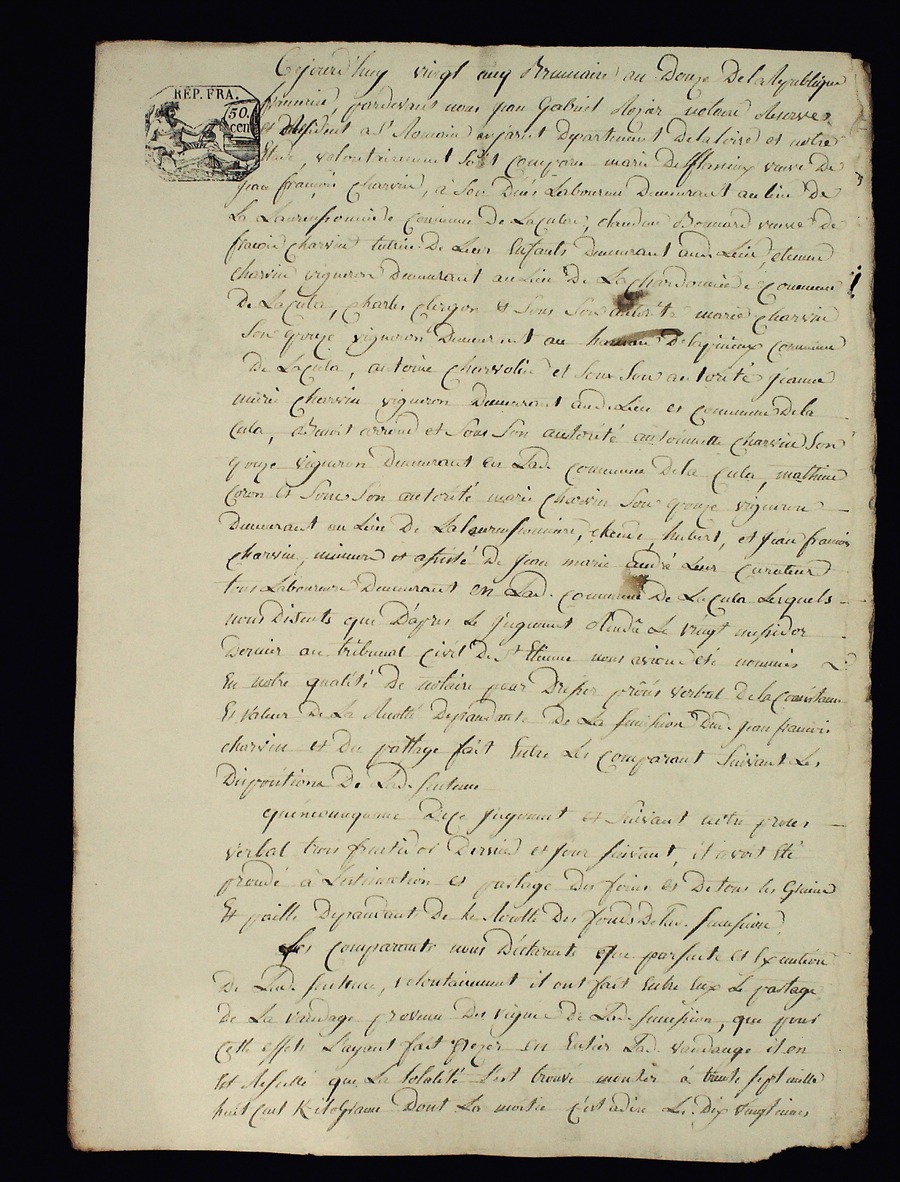 REP. FRA.
50.
cen
Cejourd'huy vingt cinq Brumaire an Douze De la Republique
francaise, pardevant nous jean Gabriel notaire Reservé
et Resident a St. Romain en jarest Departement De la loire et notre
volontairement sont comparu marie veuve De
jean françois Charvin, a son Deces Laboureur Demeurant au lieu De
La commune De La Cula, claudine Bonnard veuve De
francois charvin tutrice De Leurs Enfants Demeurant aud. Lieu, etienne
charvin vigneron Demeurant au Lieu De La Chardonniere commune
De La Cula, Charles Clergon et sous son autorité marie charvin
son epouze vigneron Demeurant au hameau commune
De La Cula, antoine Charvolin et sous son autorité jeanne
marie Charvin vigneron Demeurant aud. Lieu et commune De la
Cula, Benoit et sous son autorité antoinette charvin son
epouze vigneron Demeurant en Lad. commune De la Cula, mathieu
Coron et sous son autorité marie Charvin son epouze vigneron
Demeurant au Lieu De hubert, et jean francois
charvin, mineurs et assisté De jean marie andré Leur Curateur
tous Laboureurs Demeurant en Lad. commune De La Cula Lesquels
nous Disents que D'apres Le jugement Rendu Le vingt messidor
Dernier au tribunal Civil De St Etienne nous avions été nommés
En notre qualité De notaire pour Dresser procès verbal De la Consistance
Et valeur De La Recolte Dependante De La succession Dud. jean francois
charvin et Du partage fait Entre Les Comparant suivant Les
Dispositions De Lad. sentence
qu'en consequence De ce jugement et suivant notre proces
verbal trois fructidor Dernier et jour suivant, il avoit été
procedé a L'estimation et partage Des foins et De tous les Grains
Et paille Dependant De la Recolte Des fonds De Lad. succession.
Les comparants nous Déclarents que par suite et Execution
De Lad. sentence, volontairement il ont fait Entre Eux Le partage
De La vandage provenu Des vignes De Lad. succession, que pour
Cette effets L'ayant fait pezer en Entier Lad. vandange il en
Est Resulté que La totalité s'est trouvé monter à trente sept mille
huit Cent Kilograme Dont La moitié C'est adire Les Dix